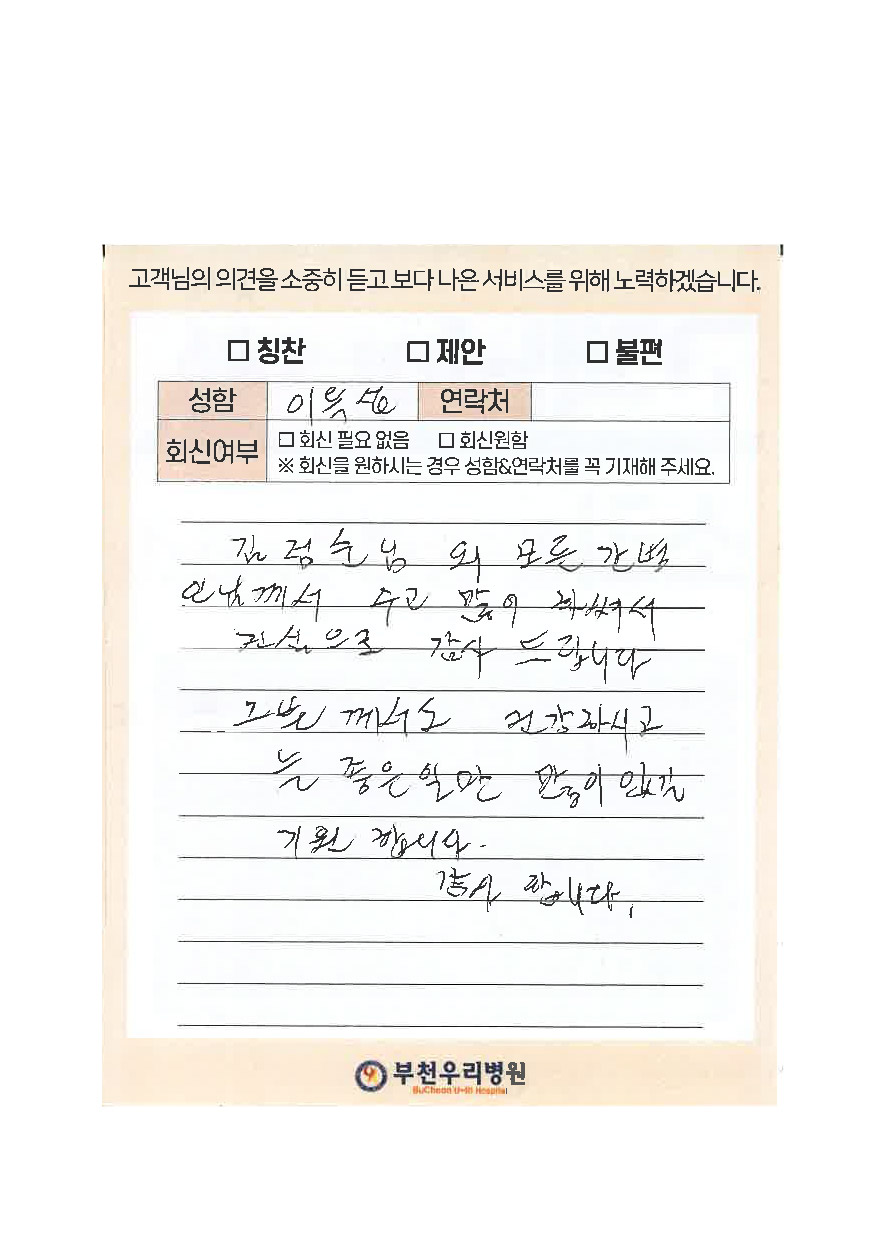 고객님의 의견을 소중히 듣고 보다 나은 서비스를 위해 노력하겠습니다.
□ 칭찬 □ 제안 □ 불편
성함 연락처
회신여부 □ 회신 필요 없음 □ 회신원함
※ 회신을 원하시는 경우 성함&연락처를 꼭 기재해 주세요.
김정순님 외 모든 간병
인님께서 수고 많이 하셔서
진심으로 감사 드립니다
그분께서도 건강하시고
늘 좋은일만 많이 있길
기원 합니다.
감사 합니다.
부천우리병원
BuCheon U-Ri Hospital